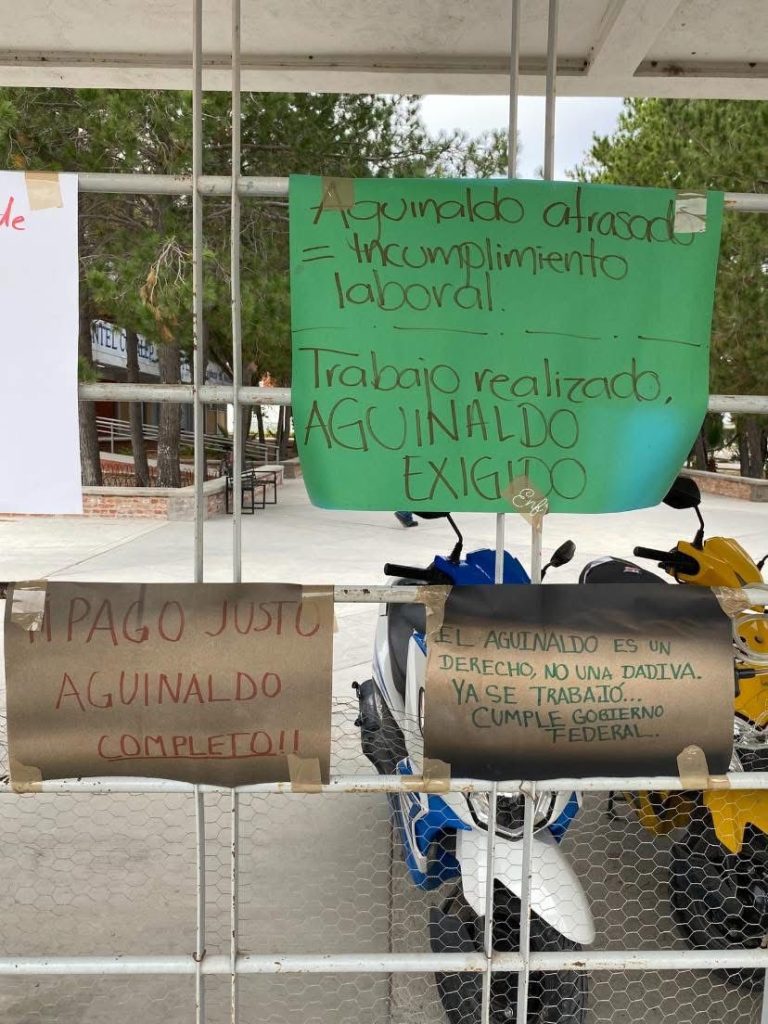 de
Aguinaldo atrasado
= Incumplimiento
laboral.
Trabajo realizado,
AGUINALDO
EXIGIDO
Enf
¡¡PAGO JUSTO
AGUINALDO
COMPLETO!!
EL AGUINALDO ES UN
DERECHO, NO UNA DADIVA.
YA SE TRABAJO...
CUMPLE GOBIERNO
FEDERAL..